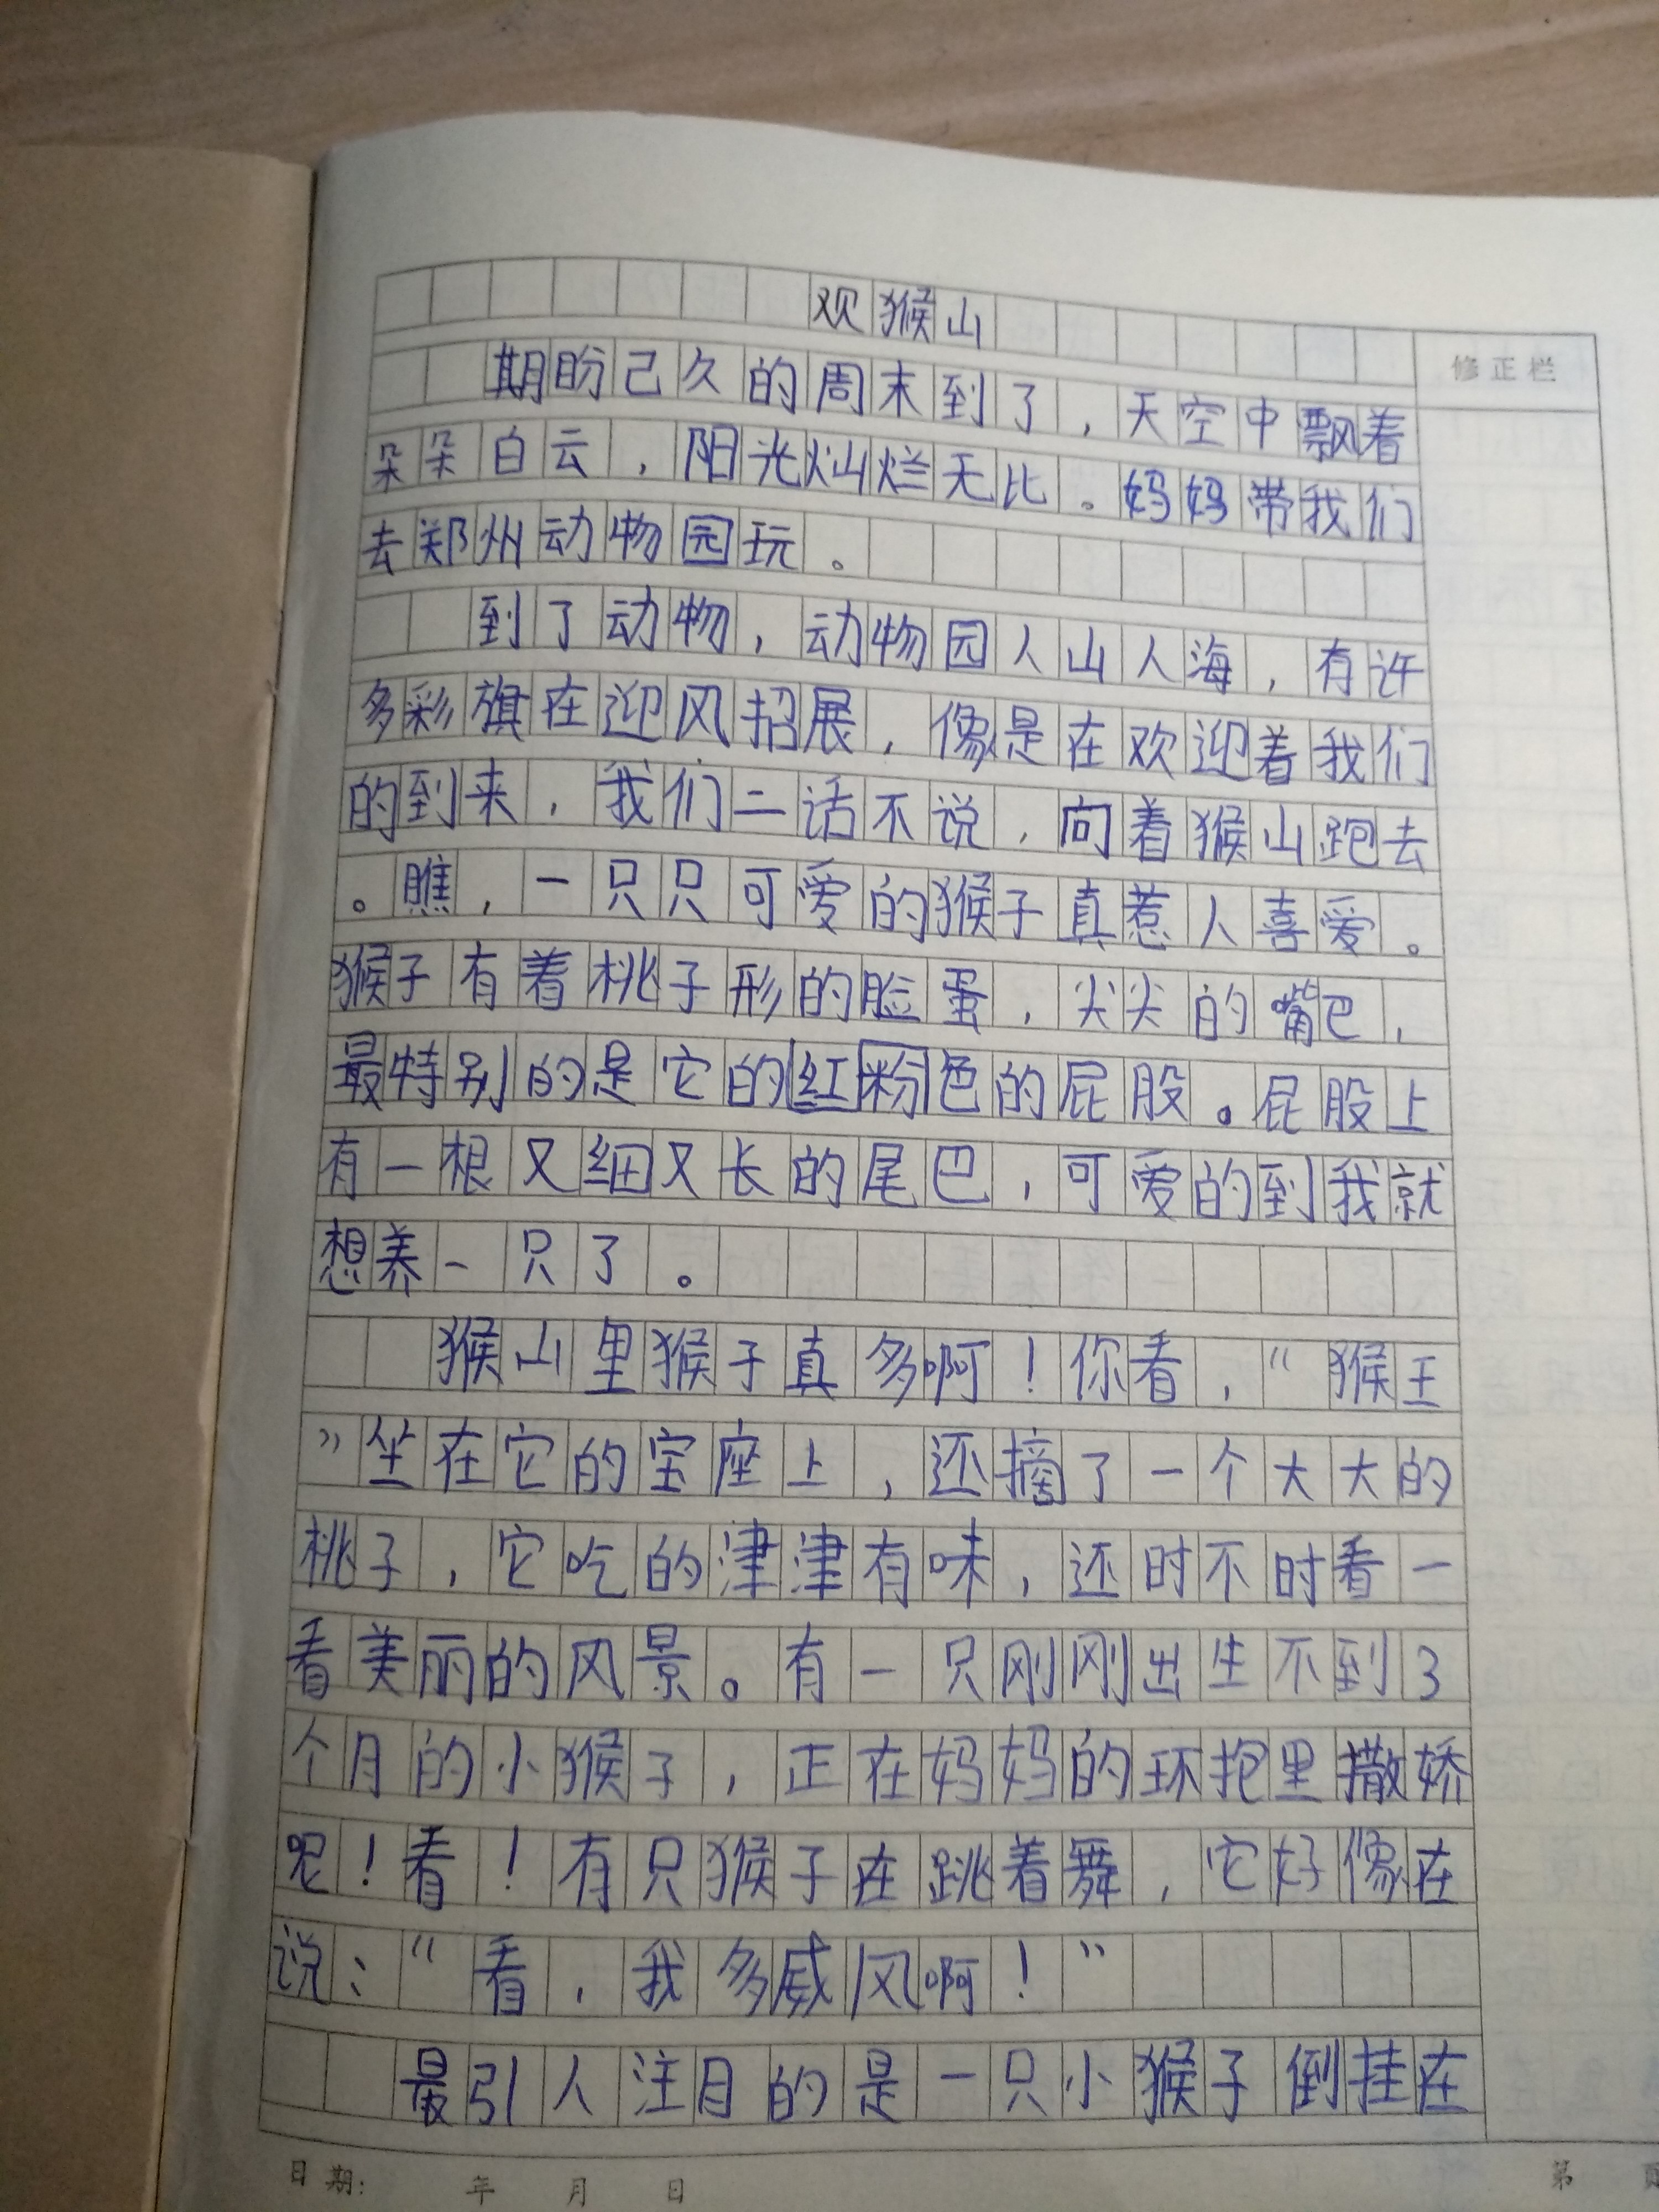 观猴山
修正栏
期盼己久的周末到了，天空中飘着
朵朵白云，阳光灿烂无比。妈妈带我们
去郑州动物园玩。
到了动物，动物园人山人海，有许
多彩旗在迎风招展，像是在欢迎着我们
的到来，我们二话不说，向着猴山跑去
。瞧，一只只可爱的猴子真惹人喜爱。
猴子有着桃子形的脸蛋，尖尖的嘴巴，
最特别的是它的红粉色的屁股。屁股上
有一根又细又长的尾巴，可爱的到我就
想养一只了。
猴山里猴子真多啊！你看，“猴王
”坐在它的宝座上，还摘了一个大大的
桃子，它吃的津津有味，还时不时看一
看美丽的风景。有一只刚刚出生不到3
个月的小猴子，正在妈妈的环抱里撒娇
呢！看！有只猴子在跳着舞，它好像在
说：“看，我多威风啊！”
最引人注目的是一只小猴子倒挂在
日期： 年 月 日
第 页